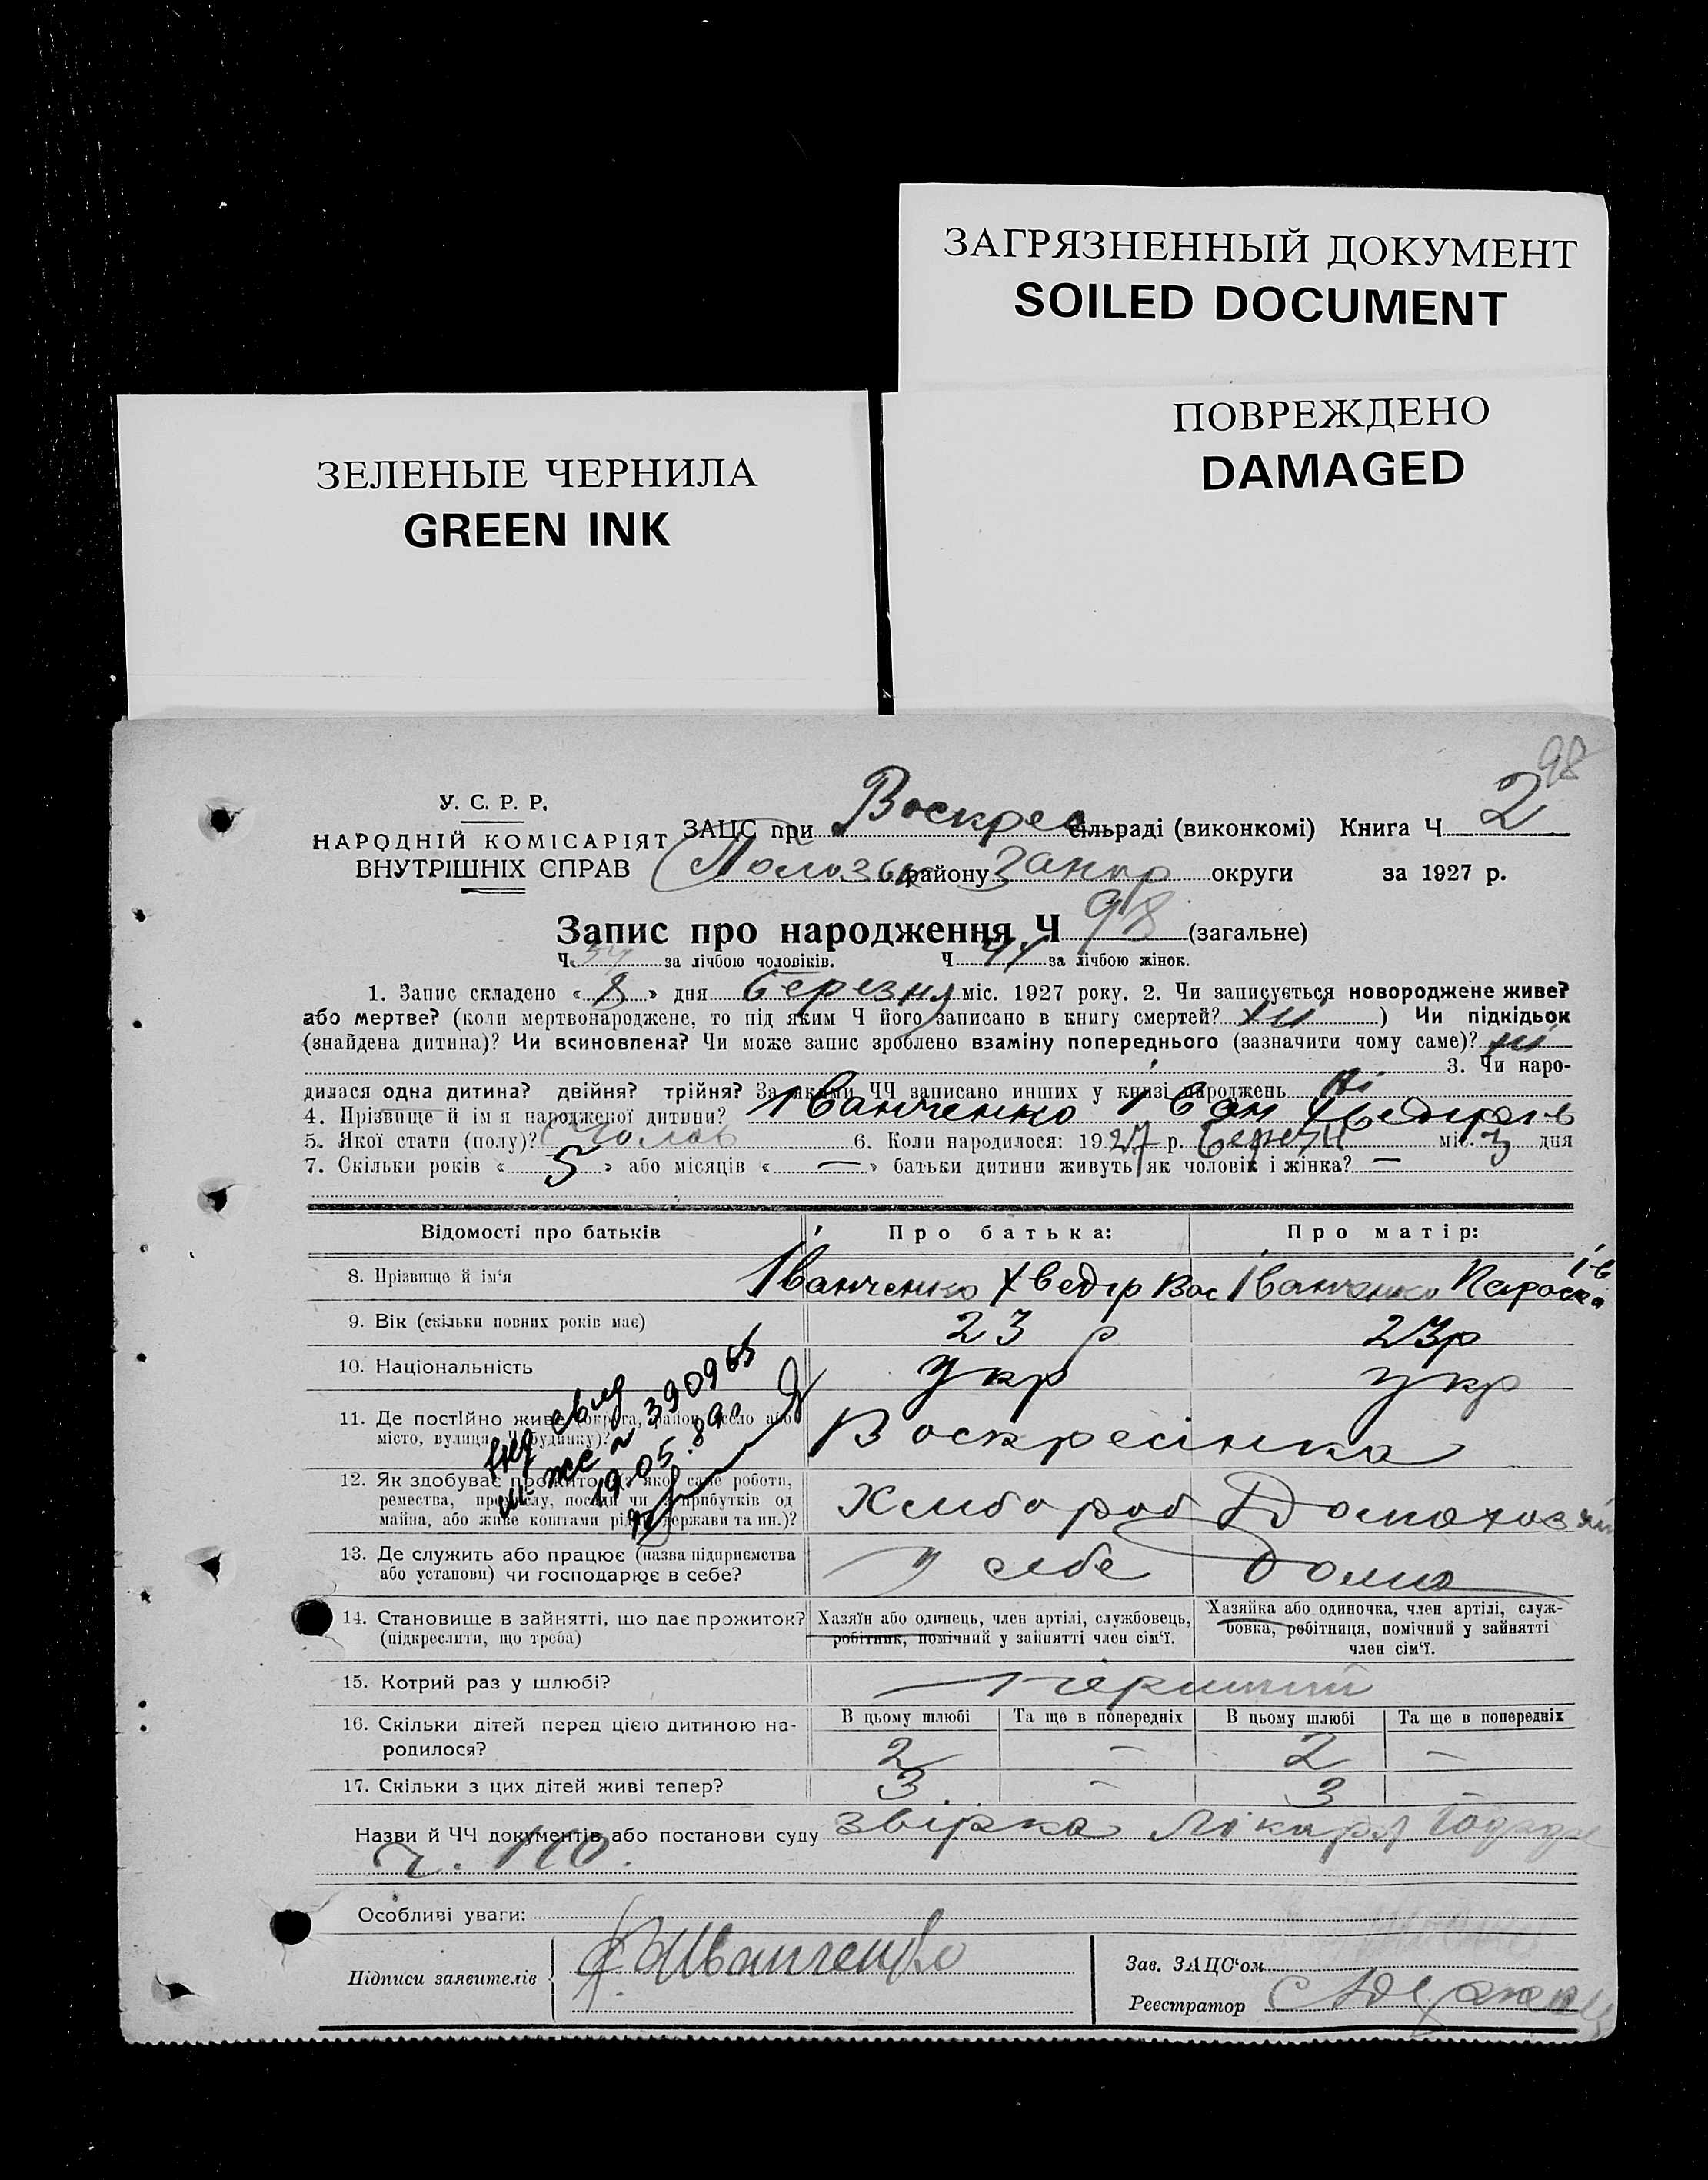 ЗАГРЯЗНЕННЫЙ ДОКУМЕНТ
SOILED DOCUMENT
ПОВРЕЖДЕНО
DAMAGED
ЗЕЛЕНЫЕ ЧЕРНИЛА
GREEN INK
98
У. С. Р. Р.
НАРОДНІЙ КОМІСАРІЯТ
ВНУТРІШНІХ СПРАВ
ЗАЦС при Воскрес сільраді (виконкомі) Книга Ч 2
району Запор округи за 1927 р.
Запис про народження Ч 98 (загальне)
Ч. 54 за лічбою чоловіків. Ч. 44 за лічбою жінок.
1. Запис складено « 8 » дня березня міс. 1927 року. 2. Чи записується новороджене живе?
або мертве? (коли мертвонароджене, то під яким Ч його записано в книгу смертей? ) Чи підкідьок
(знайдена дитина)? Чи всиновлена? Чи може запис зроблено взаміну попереднього (зазначити чому саме)?
3. Чи наро-
дилася одна дитина? двійня? трійня? За якими ЧЧ записано инших у книзі народжень Ні
4. Прізвище й ім'я народженої дитини? Іванченко Іван Хведоров
5. Якої стати (полу)? Чолов 6. Коли народилося: 1927 р. Березн міс. 3 дня
7. Скільки років « 5 » або місяців « — » батьки дитини живуть як чоловік і жінка? —
Відомості про батьків Про батька: Про матір:
8. Прізвище й ім'я Іванченко Хведір Вас Іванченко Параска Ів
9. Вік (скільки повних років має) 23 р 23р
10. Національність укр укр
11. Де постійно живе (округа, район, село або
місто, вулиця, Ч будинку)? Воскресінка
12. Як здобуває прожиток (з якої саме роботи,
ремества, промислу, посади чи з прибутків од
майна, або живе коштами рідні, держави та ин.)? Хлибороб Домохозяй
13. Де служить або працює (назва підприємства
або установи) чи господарює в себе? у себе дома
14. Становище в зайнятті, що дає прожиток?
(підкреслити, що треба)
Хазяїн або одинець, член артілі, службовець,
робітник, помічний у зайнятті член сім'ї.
Хазяйка або одиночка, член артілі, служ-
бовка, робітниця, помічний у зайнятті
член сім'ї.
15. Котрий раз у шлюбі? перший
16. Скільки дітей перед цією дитиною на-
родилося?
В цьому шлюбі Та ще в попередніх В цьому шлюбі Та ще в попередніх
2 — 2 —
17. Скільки з цих дітей живі тепер? 3 — 3 —
390965
19.05.89
Назви й ЧЧ документів або постанови суду звірка лікаря
ч. 110.
Особливі уваги:
Підписи заявителів Іванченко
Зав. ЗАЦС'ом
Реєстратор